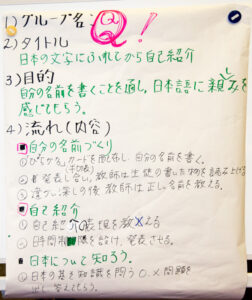 1)グループ名: Q!
2)タイトル
日本の文字にふれてから自己紹介
3)目的
自分の名前を書くことを通し、日本語に親しみを
感じてもらう。
4)流れ(内容)
自分の名前づくり
①ひらがな、カードを配布し、自分の名前を書く。
②発表し合い、教師は生徒の書いた物を読み上げる
③違う、直しの後 教師は正しい名前を教える。
自己紹介
①自己紹介の表現を教える
②時間を設け、発表させる。
日本について知ろう。
①日本の基本知識を問う○×問題を
出し答えてもらう。